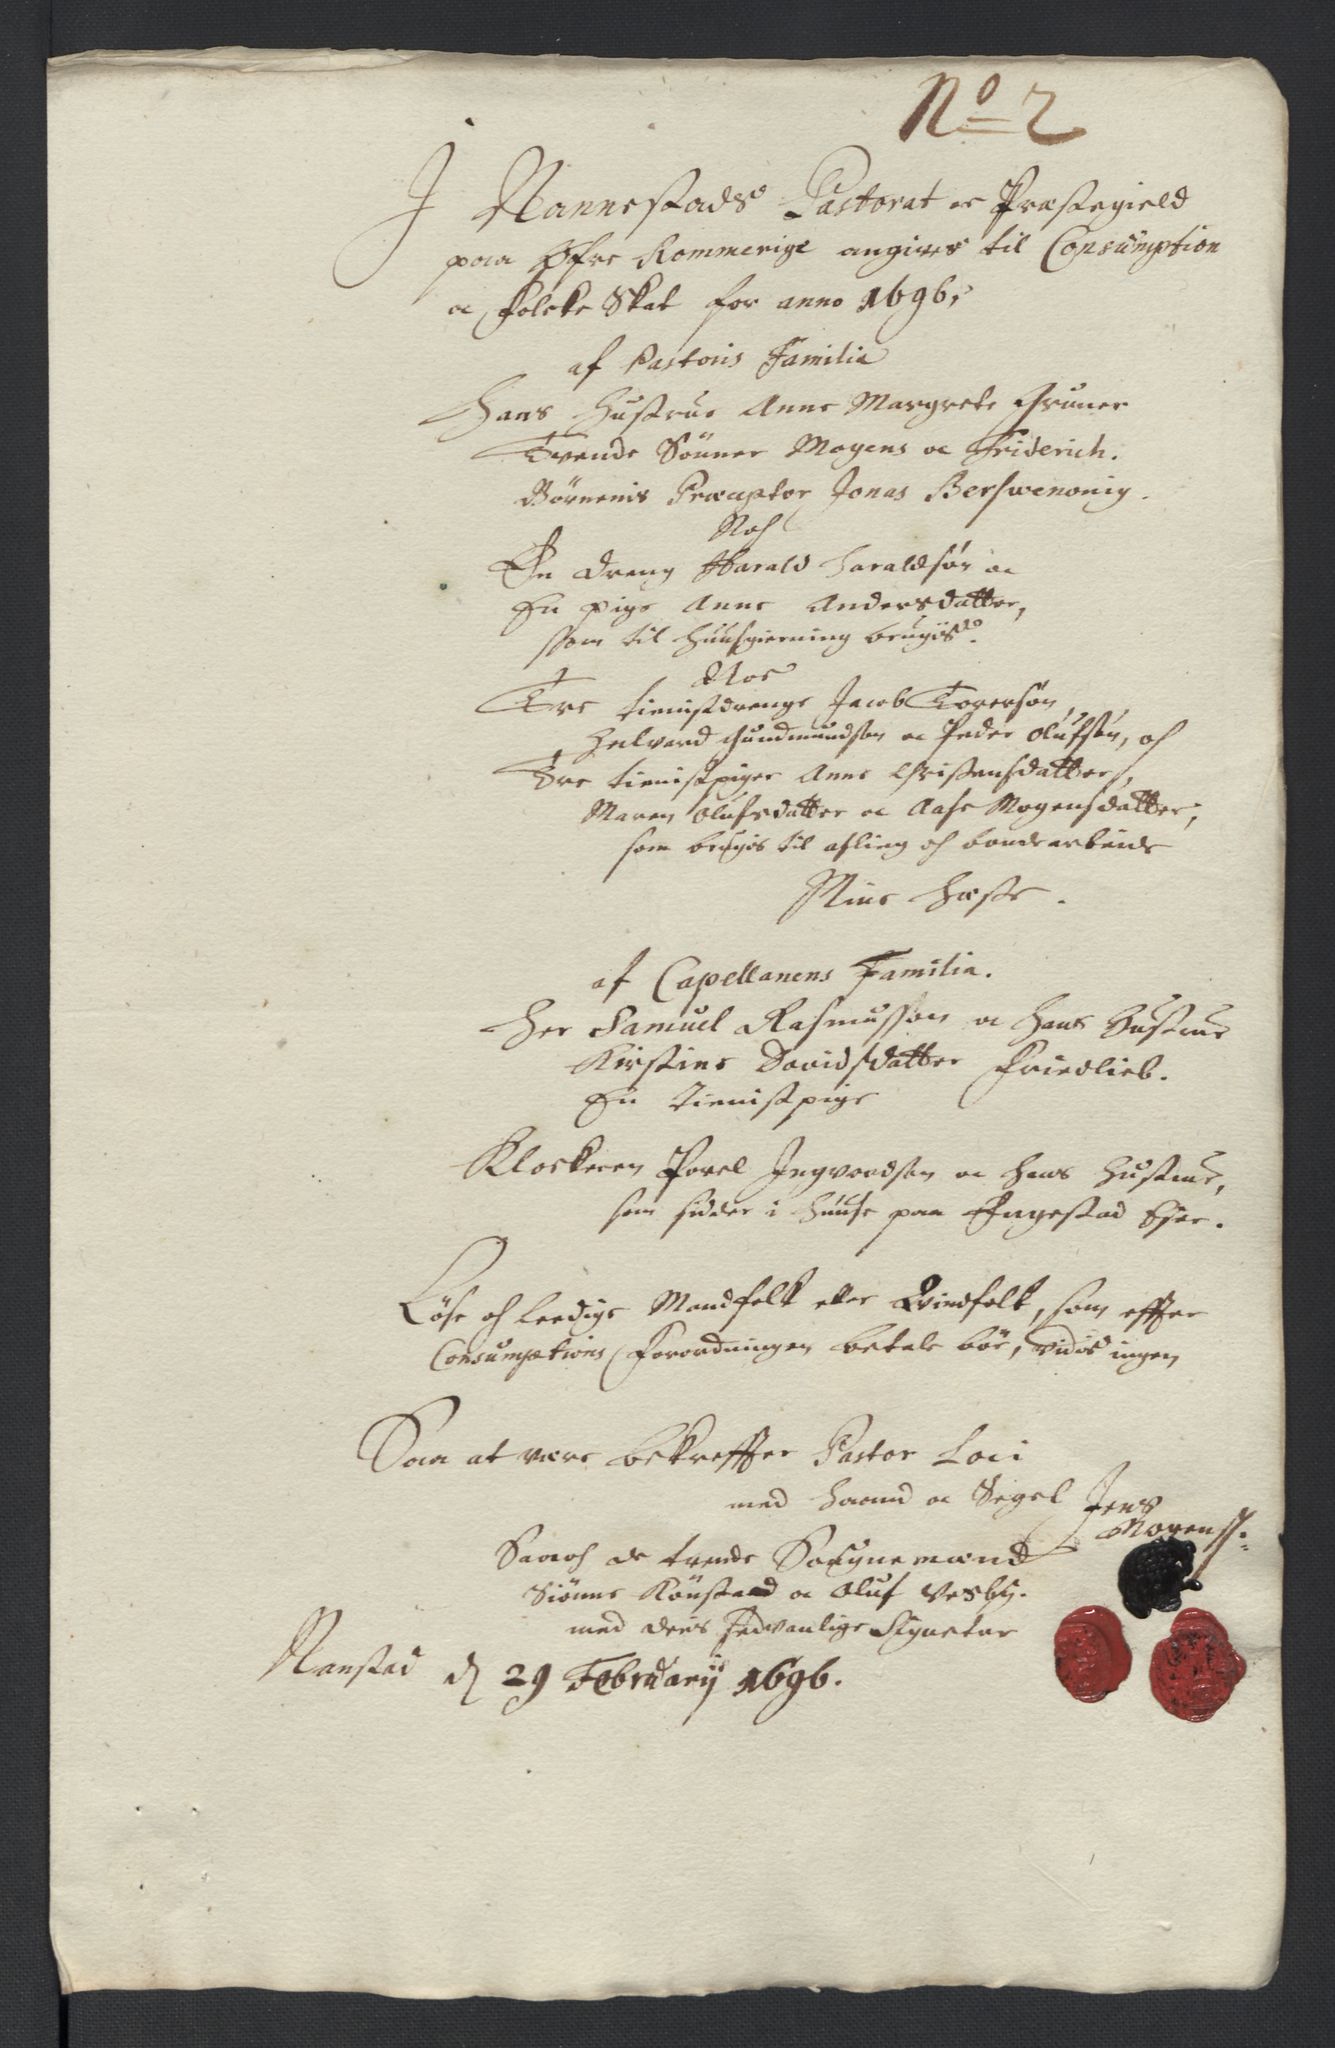 No 2
J Nannestads Pastorat oc Præstegield
paa Øfre Rommerige angives til Consumption
oc Folcke Skat for anno 1696,
af Pastoris Familia
Hans Hustrue Anne Margrete Gruner
Tvende Sönner Mogens oc Friderich.
Börnenis Præceptor Jonas
Noch
En dreng Harald Haraldsøn oc
En pige Anne Andersdatter,
som til Huusgierning brugis.
Noc
Tre tienistdrenge Jacob Torersøn,
Helvard Gundmundsøn oc Peder Olufsøn, och
Tre tienistpiger Anne Christensdatter,
Maren Olufsdatter oc Aase Mogensdatter,
som brugis til afling och bondearbeide
Niue Heste.
af Capellanens Familia.
Her Samuel Rasmussøn oc Hans Hustrue
Kirstine Davidsdatter Friedlieb.
En Tienistpige
Klockeren Povel Ingvordsøn oc hans Hustrue,
som sidder i Huuse paa Engestad Eÿer.
Löse och Leedige Mandfolk eller Qvindfolk, som effter
Consumptions Forordningen betale bör, vidis ingen
Saa at være bekreffter Pastor Loci
med Haand oc Segel Jens
Mogenss:
Saaoch de tvende Sougnemænd
Siönne Könstad oc Oluf Vesbÿ.
med deris sedvanlige Signeter
Nanstad d 29 Februarij 1696.